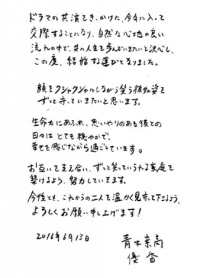 ドラマの共演をきっかけに、今年に入って
交際することになり、自然な心地の良い
流れの中で、共に人生を歩んでいきたいと決心し、
この度、結婚する運びとなりました。
顔をクシャクシャにしながら笑う彼女を
ずっと守っていきたいと思います。
生命力にあふれ、思いやりのある彼との
日々は とても穏やかで、
幸せを感じながら過ごしています。
お互いを支え合い、ずっと笑っていられる家庭を
築けるよう、努力していきます。
今後とも、これからの二人を温かく見守って下さるよう、
よろしくお願い申し上げます！
2016年6月13日
青木崇高
優香